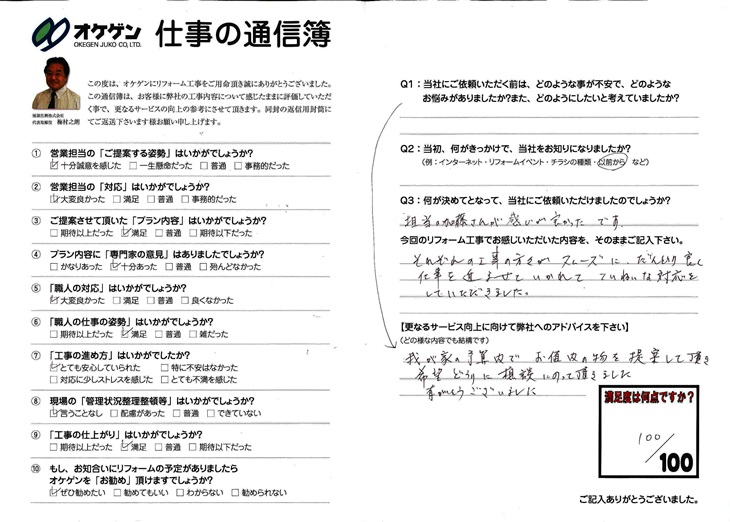 オケゲン
OKEGEN JUKO CO., LTD.
仕事の通信簿
この度は、オケゲンにリフォーム工事をご用命頂き誠にありがとうございました。
この通信簿は、お客様に弊社の工事内容について感じたままに評価していただ
く事で、更なるサービスの向上の参考にさせて頂きます。同封の返信用封筒に
てご返送下さいます様お願い申し上げます。
代表取締役 梅村之朗
① 営業担当の「ご提案する姿勢」はいかがでしょうか?
☑十分誠意を感じた □一生懸命だった □普通 □事務的だった
② 営業担当の「対応」はいかがでしょうか?
☑大変良かった □満足 □普通 □事務的だった
③ ご提案させて頂いた「プラン内容」はいかがでしょうか?
□期待以上だった ☑満足 □普通 □期待以下だった
④ プラン内容に「専門家の意見」はありましたでしょうか?
□かなりあった ☑十分あった □普通 □殆んどなかった
⑤ 「職人の対応」はいかがでしょうか?
☑大変良かった □満足 □普通 □良くなかった
⑥ 「職人の仕事の姿勢」はいかがでしょうか?
□期待以上だった ☑満足 □普通 □雑だった
⑦ 「工事の進め方」はいかがでしたか?
☑とても安心していられた □特に不安はなかった
□対応に少しストレスを感じた □とても不満を感じた
⑧ 現場の「管理状況整理整頓等」はいかがでしょうか?
☑言うことなし □配慮があった □普通 □できていない
⑨ 「工事の仕上がり」はいかがでしょうか?
□期待以上だった ☑満足 □普通 □期待以下だった
⑩ もし、お知合いにリフォームの予定がありましたら
オケゲンを「お勧め」頂けますでしょうか?
☑ぜひ勧めたい □勧めてもいい □わからない □勧められない
Q1:当社にご依頼いただく前は、どのような事が不安で、どのような
お悩みがありましたか?また、どのようにしたいと考えていましたか?
Q2:当初、何がきっかけで、当社をお知りになりましたか?
(例:インターネット・リフォームイベント・チラシの種類・以前から など)
Q3:何が決めてとなって、当社にご依頼いただけましたのでしょうか?
担当の加藤さんが感じが良かったです。
今回のリフォーム工事でお感じいただいた内容を、そのままご記入下さい。
それぞれの工事の方々がスムーズに、だんどり良く
仕事を進ませていかれて ていねいな対応を
していただきました。
【更なるサービス向上に向けて弊社へのアドバイスを下さい】
(どの様な内容でも結構です)
我が家の予算内で お値内の物を提案して頂き
希望どうりに相談にのって頂きました
有がとうございました
満足度は何点ですか?
100/100
ご記入ありがとうございました。